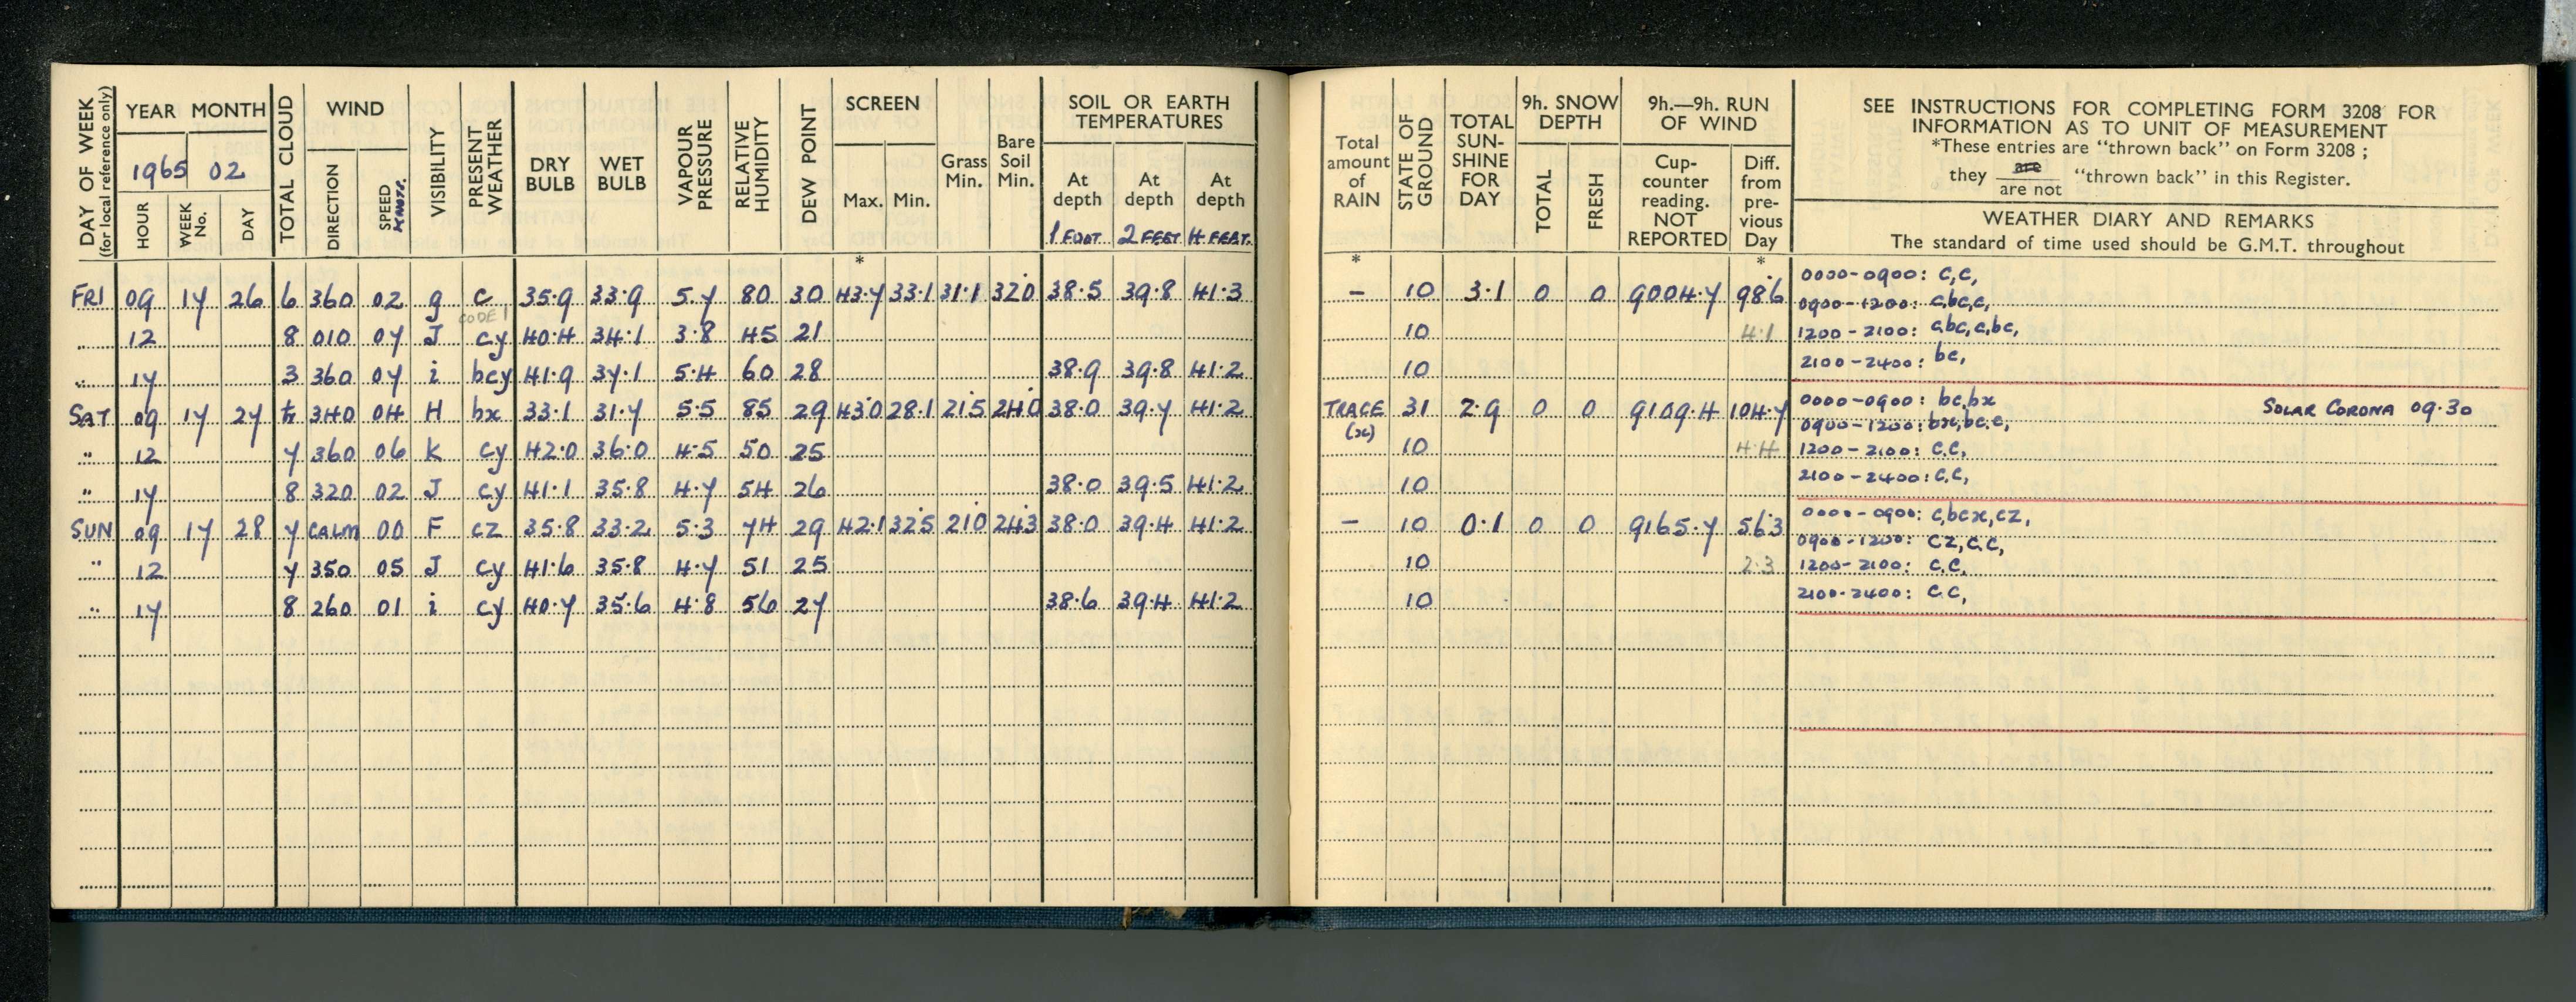 DAY OF WEEK
(for local reference only)
YEAR MONTH
1965 02
HOUR
WEEK No.
DAY
TOTAL CLOUD
WIND
DIRECTION
SPEED
KNOTS.
VISIBILITY
PRESENT WEATHER
DRY BULB
WET BULB
VAPOUR PRESSURE
RELATIVE HUMIDITY
DEW POINT
SCREEN
Max. Min.
*
Grass Min.
Bare Soil Min.
SOIL OR EARTH TEMPERATURES
At depth At depth At depth
1 FOOT 2 FEET 4 FEET.
Total amount of RAIN
*
STATE OF GROUND
TOTAL SUN-SHINE FOR DAY
9h. SNOW DEPTH
TOTAL
FRESH
9h.—9h. RUN OF WIND
Cup-counter reading. NOT REPORTED
Diff. from pre-vious Day
*
SEE INSTRUCTIONS FOR COMPLETING FORM 3208 FOR
INFORMATION AS TO UNIT OF MEASUREMENT
*These entries are "thrown back" on Form 3208 ;
they are / are not "thrown back" in this Register.
WEATHER DIARY AND REMARKS
The standard of time used should be G.M.T. throughout
FRI 09 17 26 6 360 02 g c 35.9 33.9 5.7 80 30 43.7 33.1 31.1 32.0 38.5 39.8 41.3 – 10 3.1 0 0 9004.7 98.6 0000-0900: c,c,
CODE 1
0900-1200: c,bc,c,
" 12 8 010 07 J cy 40.4 34.1 3.8 45 21 10 4.1 1200-2100: c,bc,c,bc,
" 17 3 360 07 i bcy 41.9 37.1 5.4 60 28 38.9 39.8 41.2 10 2100-2400: bc,
SAT 09 17 27 340 04 H bx 33.1 31.7 5.5 85 29 43.0 28.1 21.5 24.0 38.0 39.7 41.2 TRACE (x) 31 2.9 0 0 9109.4 104.7 0000-0900: bc,bx SOLAR CORONA 09.30
0900-1200: bx,bc,c,
" 12 7 360 06 K cy 42.0 36.0 4.5 50 25 10 4.4 1200-2100: c,c,
" 17 8 320 02 J cy 41.1 35.8 4.7 54 26 38.0 39.5 41.2 10 2100-2400: c,c,
SUN 09 17 28 7 CALM 00 F cz 35.8 33.2 5.3 74 29 42.1 32.5 21.0 24.3 38.0 39.4 41.2 – 10 0.1 0 0 9165.7 56.3 0000-0900: c,bcx,cz,
0900-1200: cz,c,c,
" 12 7 350 05 J cy 41.6 35.8 4.7 51 25 10 2.3 1200-2100: c,c,
" 17 8 260 01 i cy 40.7 35.6 4.8 56 27 38.6 39.4 41.2 10 2100-2400: c,c,